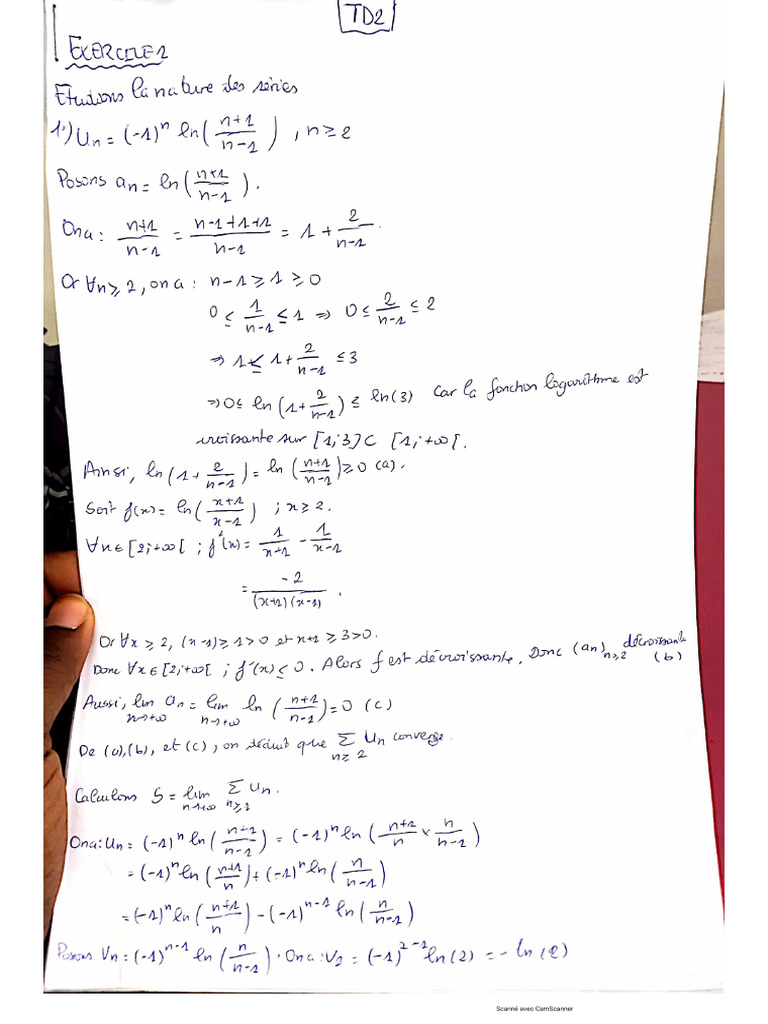 TD2
EXERCICE 1
Etudions la nature des séries
1°) Un = (-1)^n ln( (n+1)/(n-1) ) , n ≥ 2
Posons an = ln( (n+1)/(n-1) ).
On a : (n+1)/(n-1) = (n-1+1+1)/(n-1) = 1 + 2/(n-1).
Or ∀n ≥ 2, on a : n-1 ≥ 1 ≥ 0
0 ≤ 1/(n-1) ≤ 1 ⇒ 0 ≤ 2/(n-1) ≤ 2
⇒ 1 ≤ 1 + 2/(n-1) ≤ 3
⇒ 0 ≤ ln( 1 + 2/(n-1) ) ≤ ln(3) car la fonction logarithme est
croissante sur [1;3] ⊂ [1;+∞[.
Ainsi, ln( 1 + 2/(n-1) ) = ln( (n+1)/(n-1) ) ≥ 0 (a).
Soit f(x) = ln( (x+1)/(x-1) ) ; x ≥ 2.
∀x ∈ [2;+∞[ ; f'(x) = 1/(x+1) - 1/(x-1)
= -2/((x+1)(x-1)).
Or ∀x ≥ 2, (x-1) ≥ 1 > 0 et x+1 ≥ 3 > 0.
Donc ∀x ∈ [2;+∞[ ; f'(x) ≤ 0. Alors f est décroissante, Donc (an)n≥2 décroissante (b)
Aussi, lim n→+∞ an = lim n→+∞ ln( (n+1)/(n-1) ) = 0 (c)
De (a),(b), et (c), on déduit que Σ n≥2 Un converge.
Calculons S = lim n→+∞ Σ n≥2 Un.
On a : Un = (-1)^n ln( (n+1)/(n-1) ) = (-1)^n ln( (n+1)/n × n/(n-1) )
= (-1)^n ln( (n+1)/n ) + (-1)^n ln( n/(n-1) )
= (-1)^n ln( (n+1)/n ) - (-1)^(n-1) ln( n/(n-1) )
Posons Vn = (-1)^(n-1) ln( n/(n-1) ). On a : V2 = (-1)^(2-1) ln(2) = - ln(2)
Scanné avec CamScanner